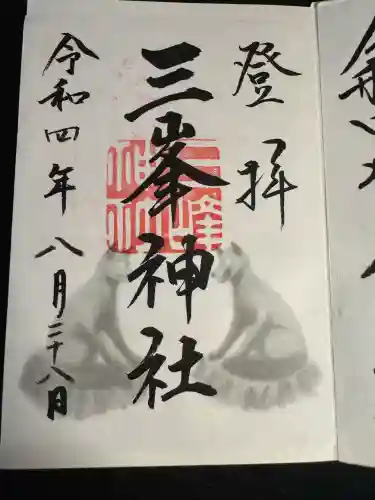 登拝
三峯神社
令和四年 八月二十八日